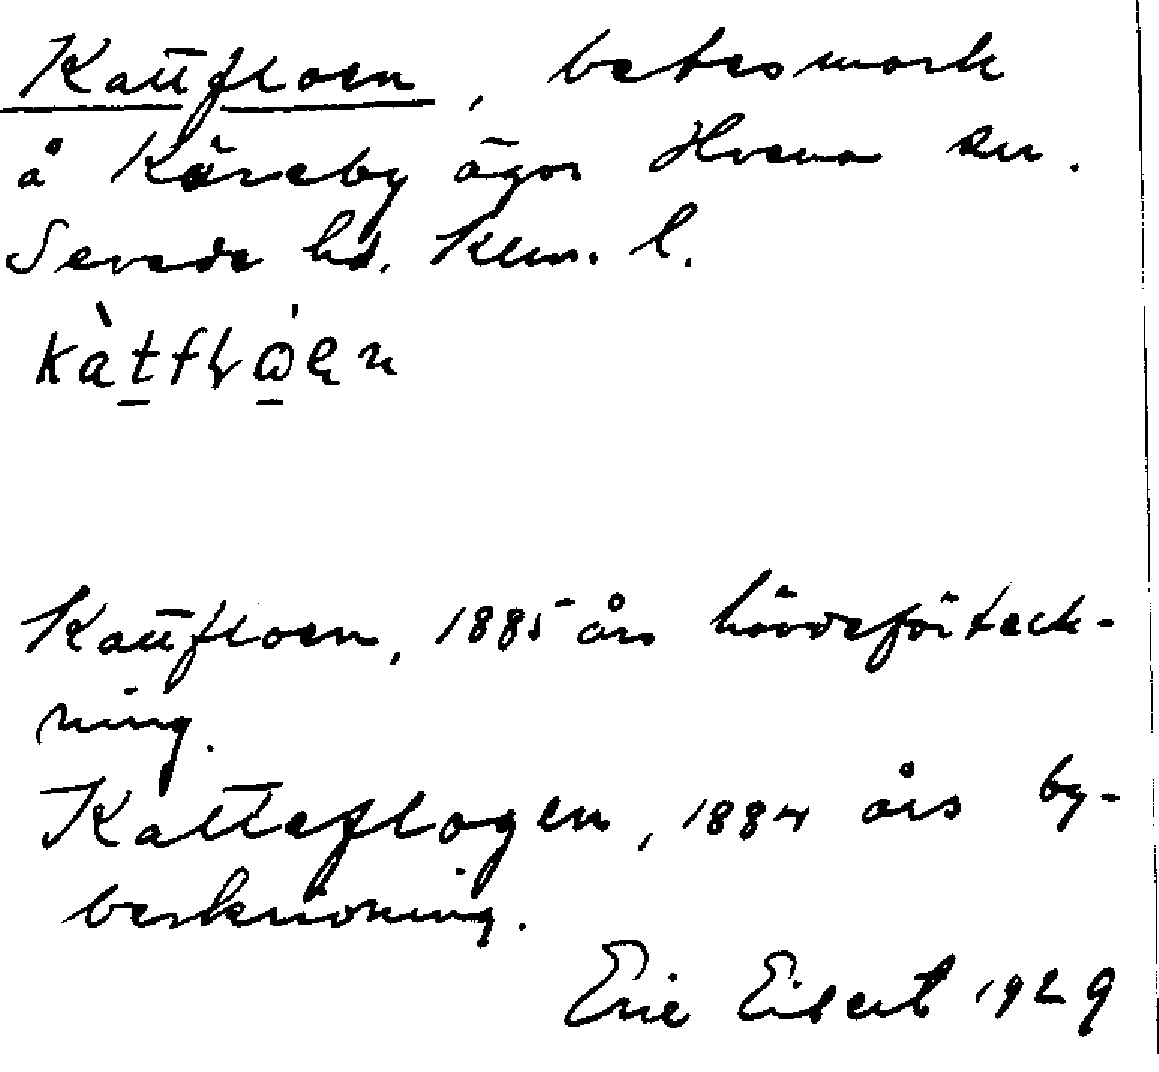 Kattfloen, betesmark
å Käreby ägor Hvena sn.
Sevede hd. Klm. l.
Kattfloen, 1885 års hävdeförteck-
ning.
Katteflogen, 1884 års by-
beskrivning.
Eric Eilert 1929